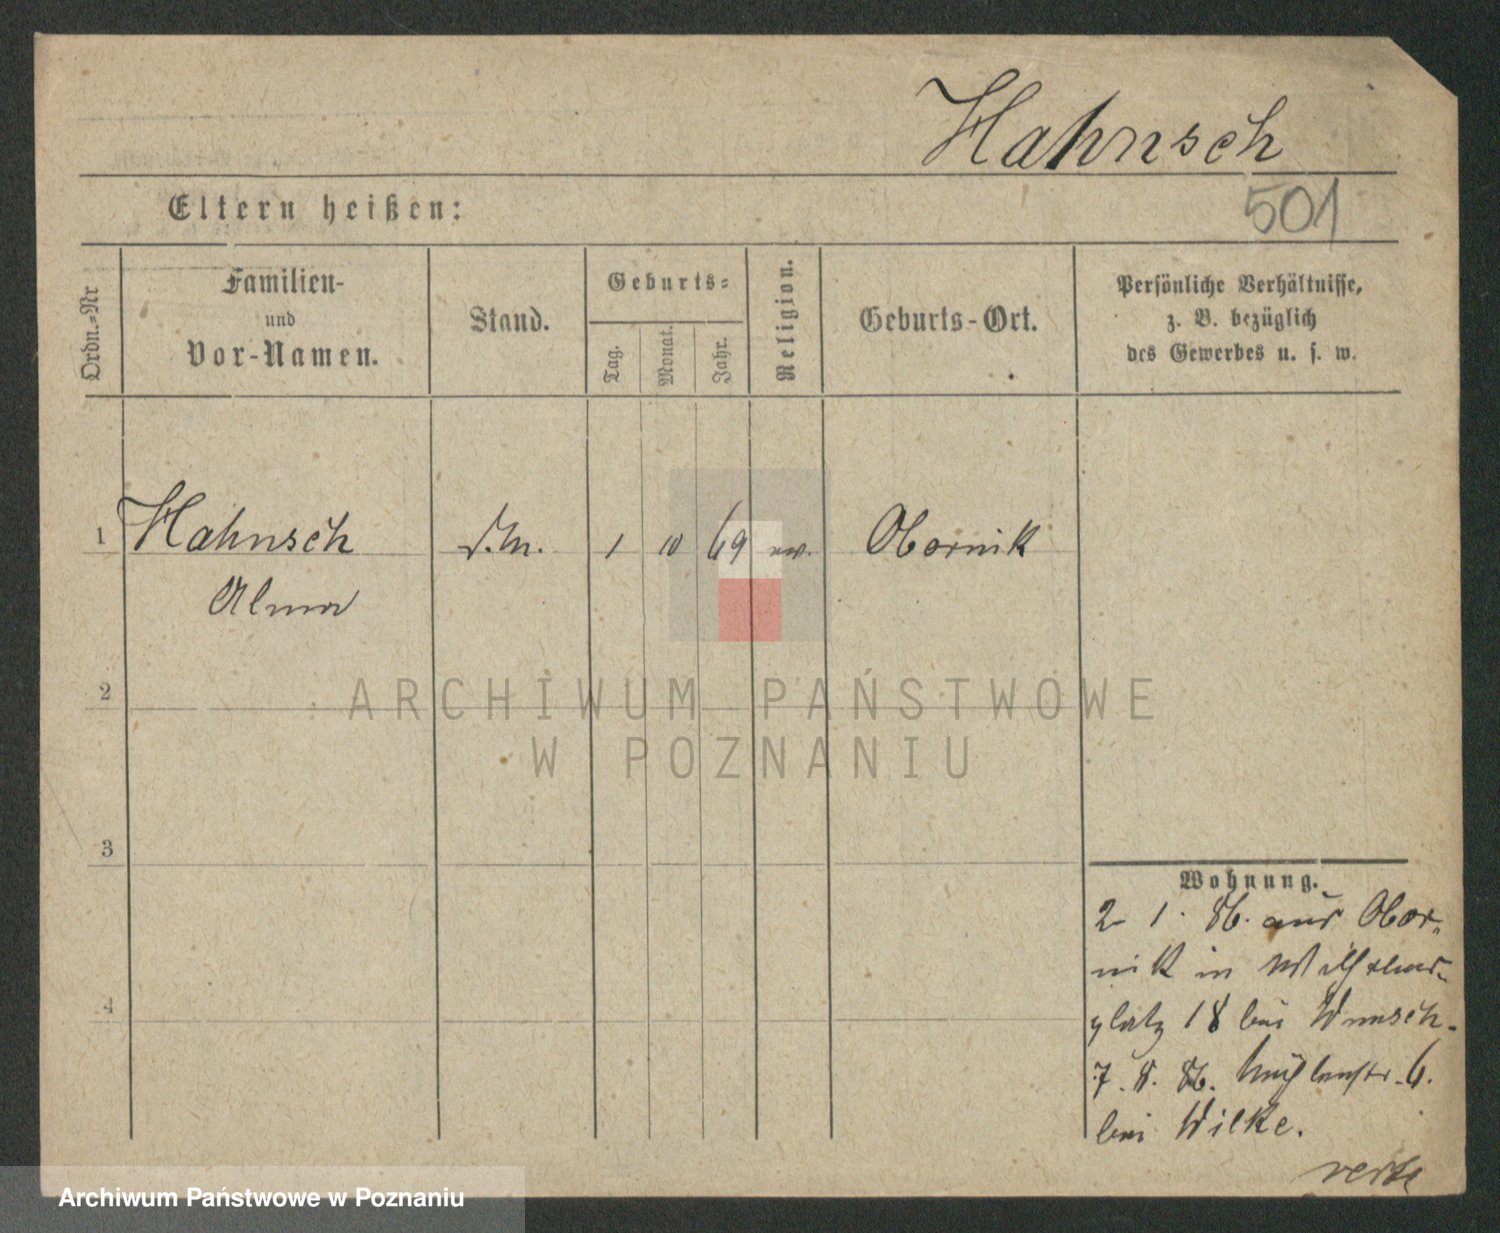 Hahnsch
501
Eltern heißen:
Ordn.=Nr
Familien-
und
Vor-Namen.
Stand.
Geburts=
Tag.
Monat.
Jahr.
Religion.
Geburts-Ort.
Persönliche Verhältnisse,
z. B. bezüglich
des Gewerbes u. s. w.
1 Hahnsch 1 10 69 ev. Obornik
Alma
2
ARCHIWUM PAŃSTWOWE
W POZNANIU
3
Wohnung.
2 1. 86. aus Obor-
nik in Wilhelms-
platz 18 bei Wunsch.
7. 8. 86. Mühlenstr. 6.
bei Wilke.
4
Archiwum Państwowe w Poznaniu